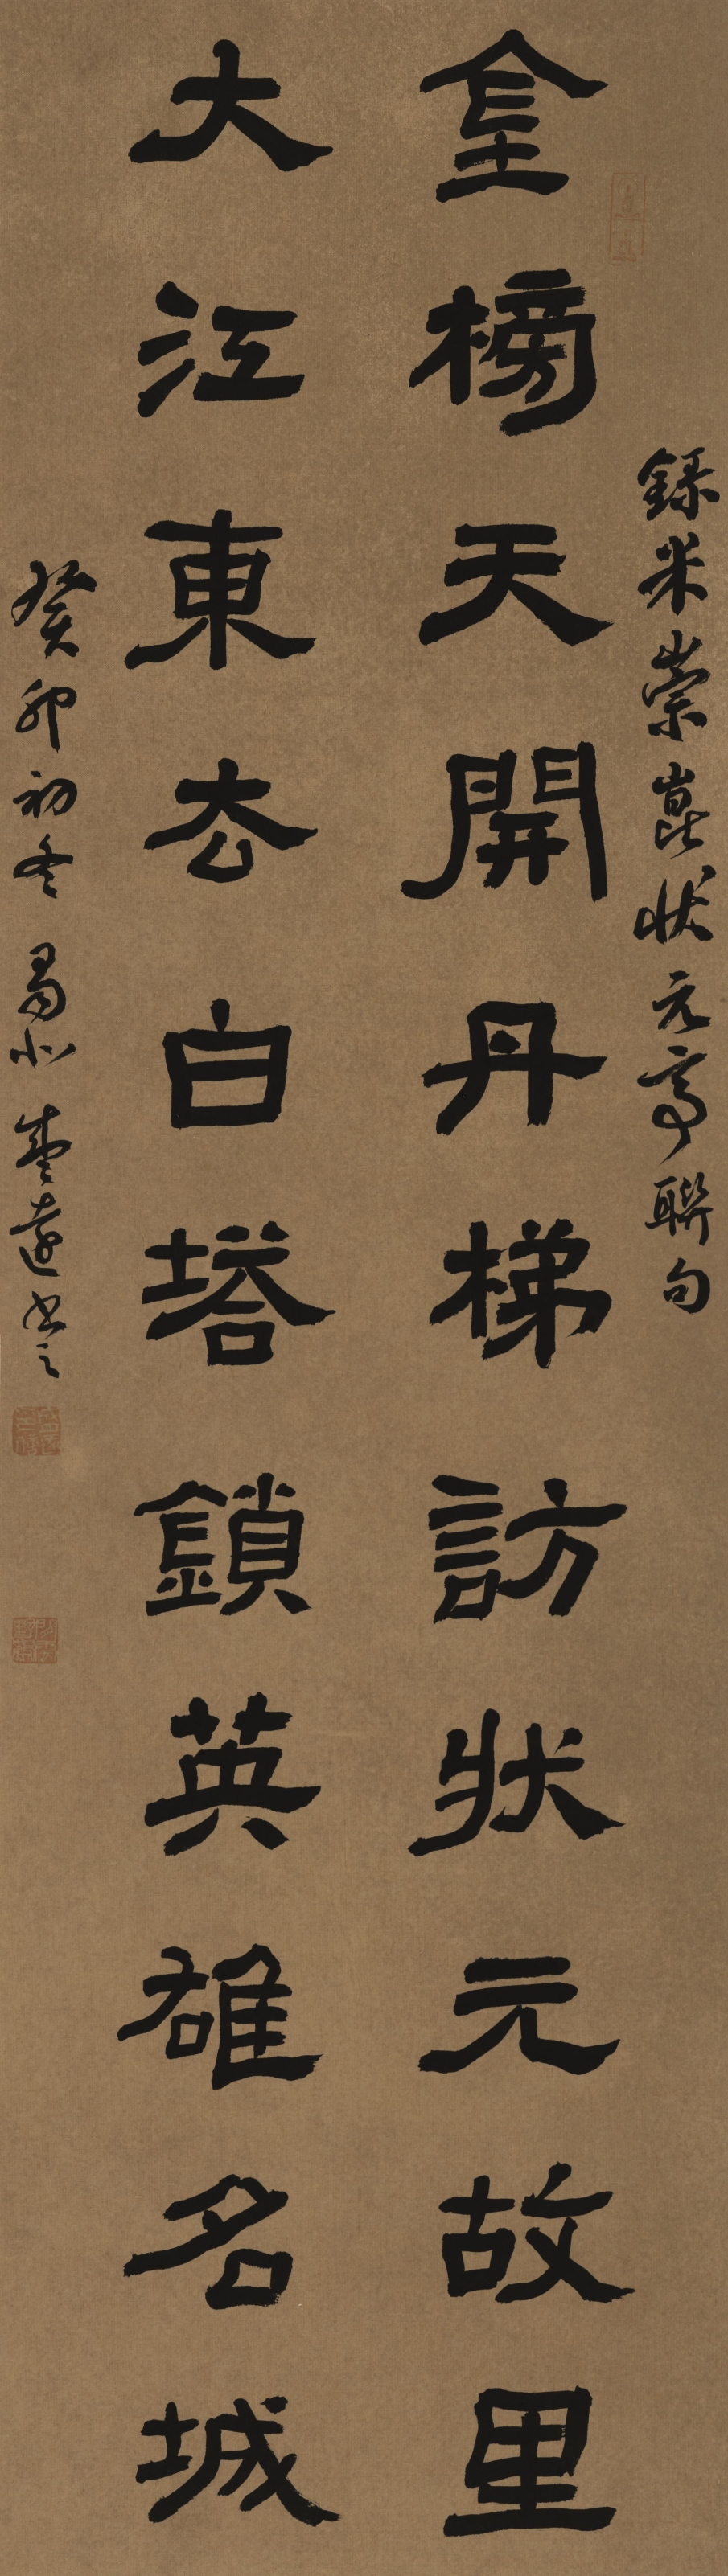 錄米崇崑狀元亭聯句
金榜天開丹梯訪狀元故里
大江東去白塔鎖英雄名城
癸卯初冬蜀北書之